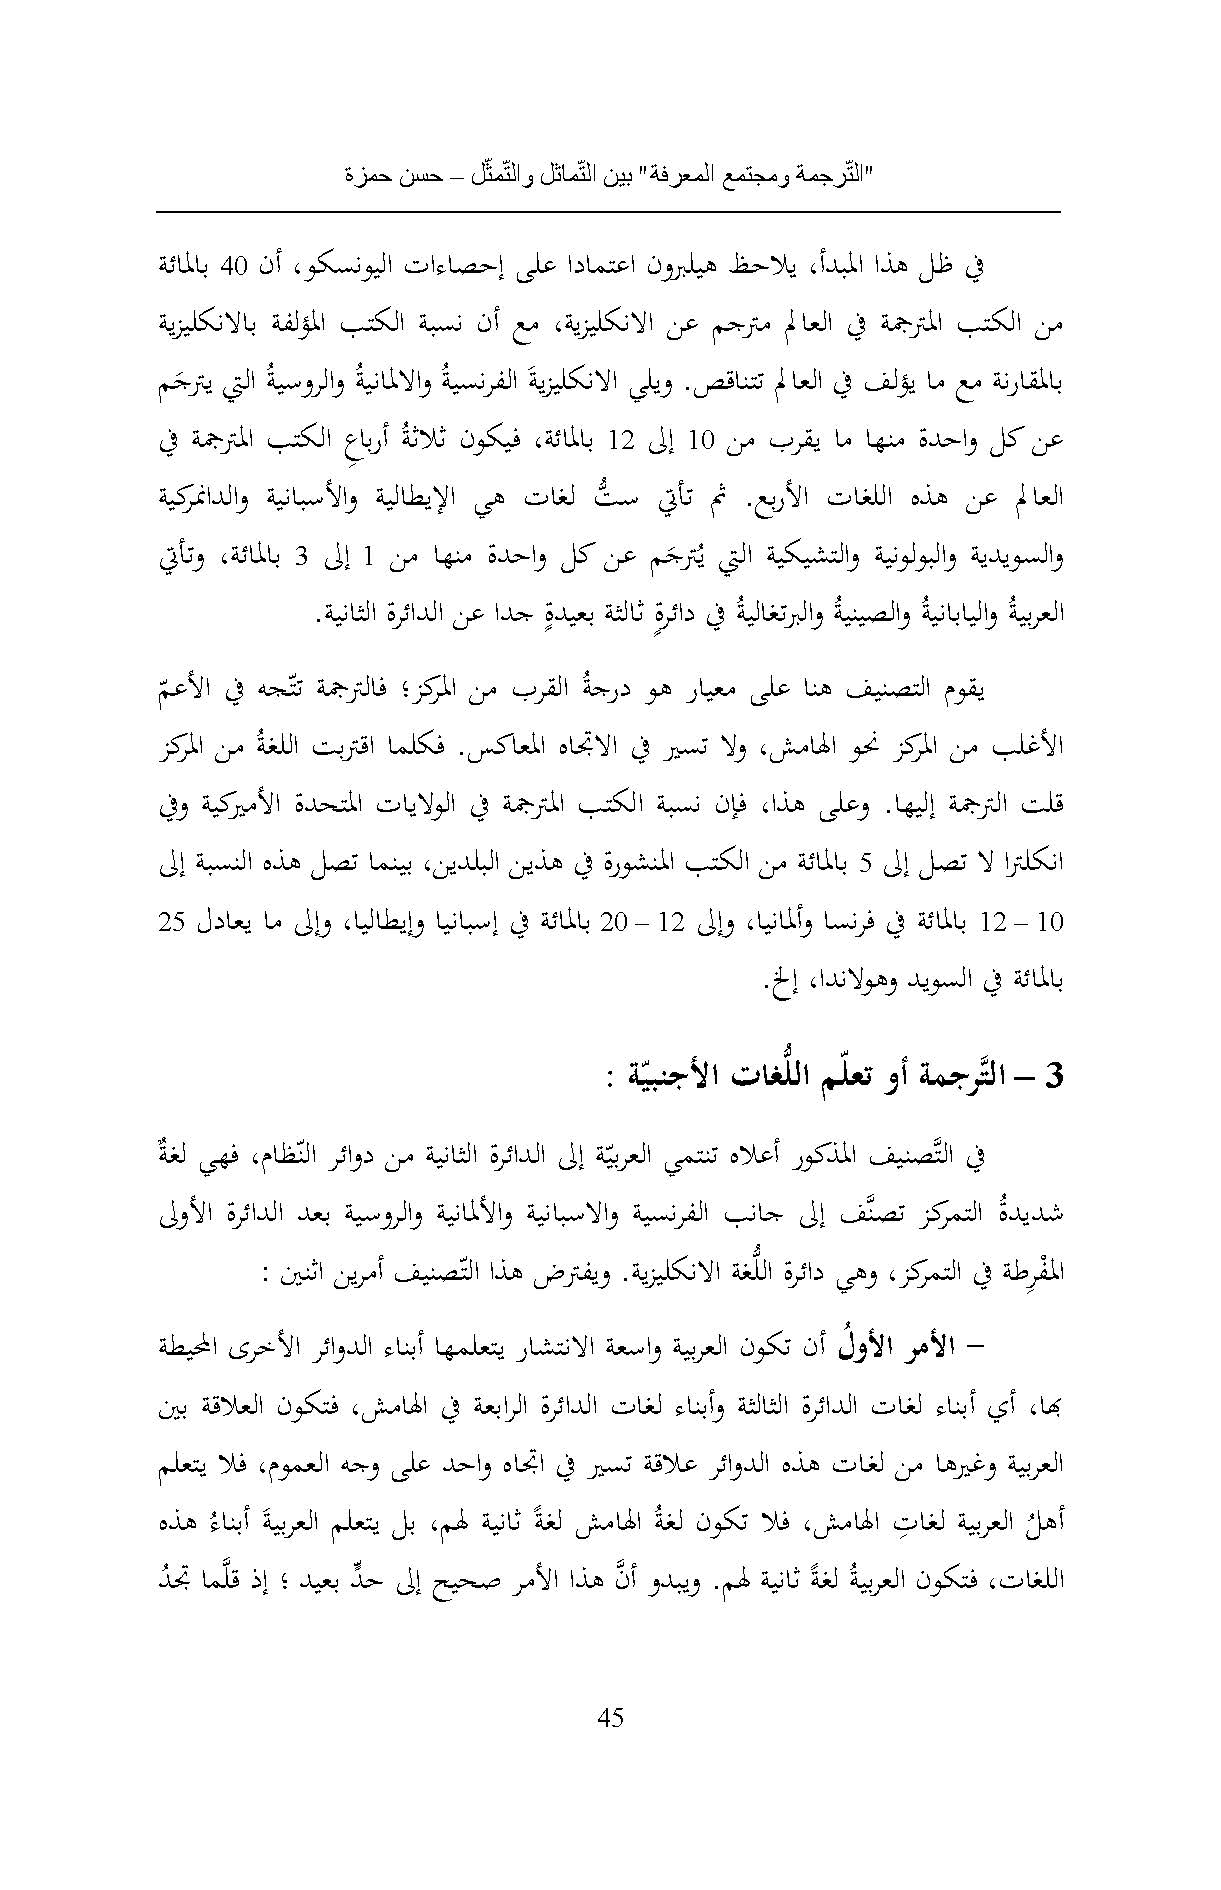 "التّرجمة ومجتمع المعرفة" بين التّماثل والتّمثّل – حسن حمزة
في ظل هذا المبدأ، يلاحظ هيلبرون اعتمادا على إحصاءات اليونسكو، أن 40 بالمائة
من الكتب المترجمة في العالم مترجم عن الانكليزية، مع أن نسبة الكتب المؤلفة بالانكليزية
بالمقارنة مع ما يؤلف في العالم تتناقص. ويلي الانكليزيةَ الفرنسيةُ والالمانيةُ والروسيةُ التي يترجَم
عن كل واحدة منها ما يقرب من 10 إلى 12 بالمائة، فيكون ثلاثةُ أرباعِ الكتب المترجمة في
العالم عن هذه اللغات الأربع. ثم تأتي ستُّ لغات هي الإيطالية والأسبانية والدانمركية
والسويدية والبولونية والتشيكية التي يُترجَم عن كل واحدة منها من 1 إلى 3 بالمائة، وتأتي
العربيةُ واليابانيةُ والصينيةُ والبرتغاليةُ في دائرةٍ ثالثة بعيدةٍ جدا عن الدائرة الثانية.
يقوم التصنيف هنا على معيار هو درجةُ القرب من المركز؛ فالترجمة تتّجه في الأعمّ
الأغلب من المركز نحو الهامش، ولا تسير في الاتجاه المعاكس. فكلما اقتربت اللغةُ من المركز
قلت الترجمة إليها. وعلى هذا، فإن نسبة الكتب المترجمة في الولايات المتحدة الأميركية وفي
انكلترا لا تصل إلى 5 بالمائة من الكتب المنشورة في هذين البلدين، بينما تصل هذه النسبة إلى
10 – 12 بالمائة في فرنسا وألمانيا، وإلى 12 – 20 بالمائة في إسبانيا وإيطاليا، وإلى ما يعادل 25
بالمائة في السويد وهولاندا، إلخ.
3 – التَّرجمة أو تعلّم اللُّغات الأجنبيّة :
في التَّصنيف المذكور أعلاه تنتمي العربيّة إلى الدائرة الثانية من دوائر النّظام، فهي لغةٌ
شديدةُ التمركز تصنَّف إلى جانب الفرنسية والاسبانية والألمانية والروسية بعد الدائرة الأولى
المفْرِطة في التمركز، وهي دائرة اللُّغة الانكليزية. ويفترض هذا التّصنيف أمرين اثنين :
– الأمر الأولُ أن تكون العربية واسعة الانتشار يتعلمها أبناء الدوائر الأخرى المحيطة
بها، أي أبناء لغات الدائرة الثالثة وأبناء لغات الدائرة الرابعة في الهامش، فتكون العلاقة بين
العربية وغيرها من لغات هذه الدوائر علاقة تسير في اتجاه واحد على وجه العموم، فلا يتعلم
أهلُ العربية لغاتِ الهامش، فلا تكون لغةُ الهامش لغةً ثانية لهم، بل يتعلم العربيةَ أبناءُ هذه
اللغات، فتكون العربيةُ لغةً ثانية لهم. ويبدو أنَّ هذا الأمر صحيح إلى حدٍّ بعيد ؛ إذ قلَّما تجدُ
45